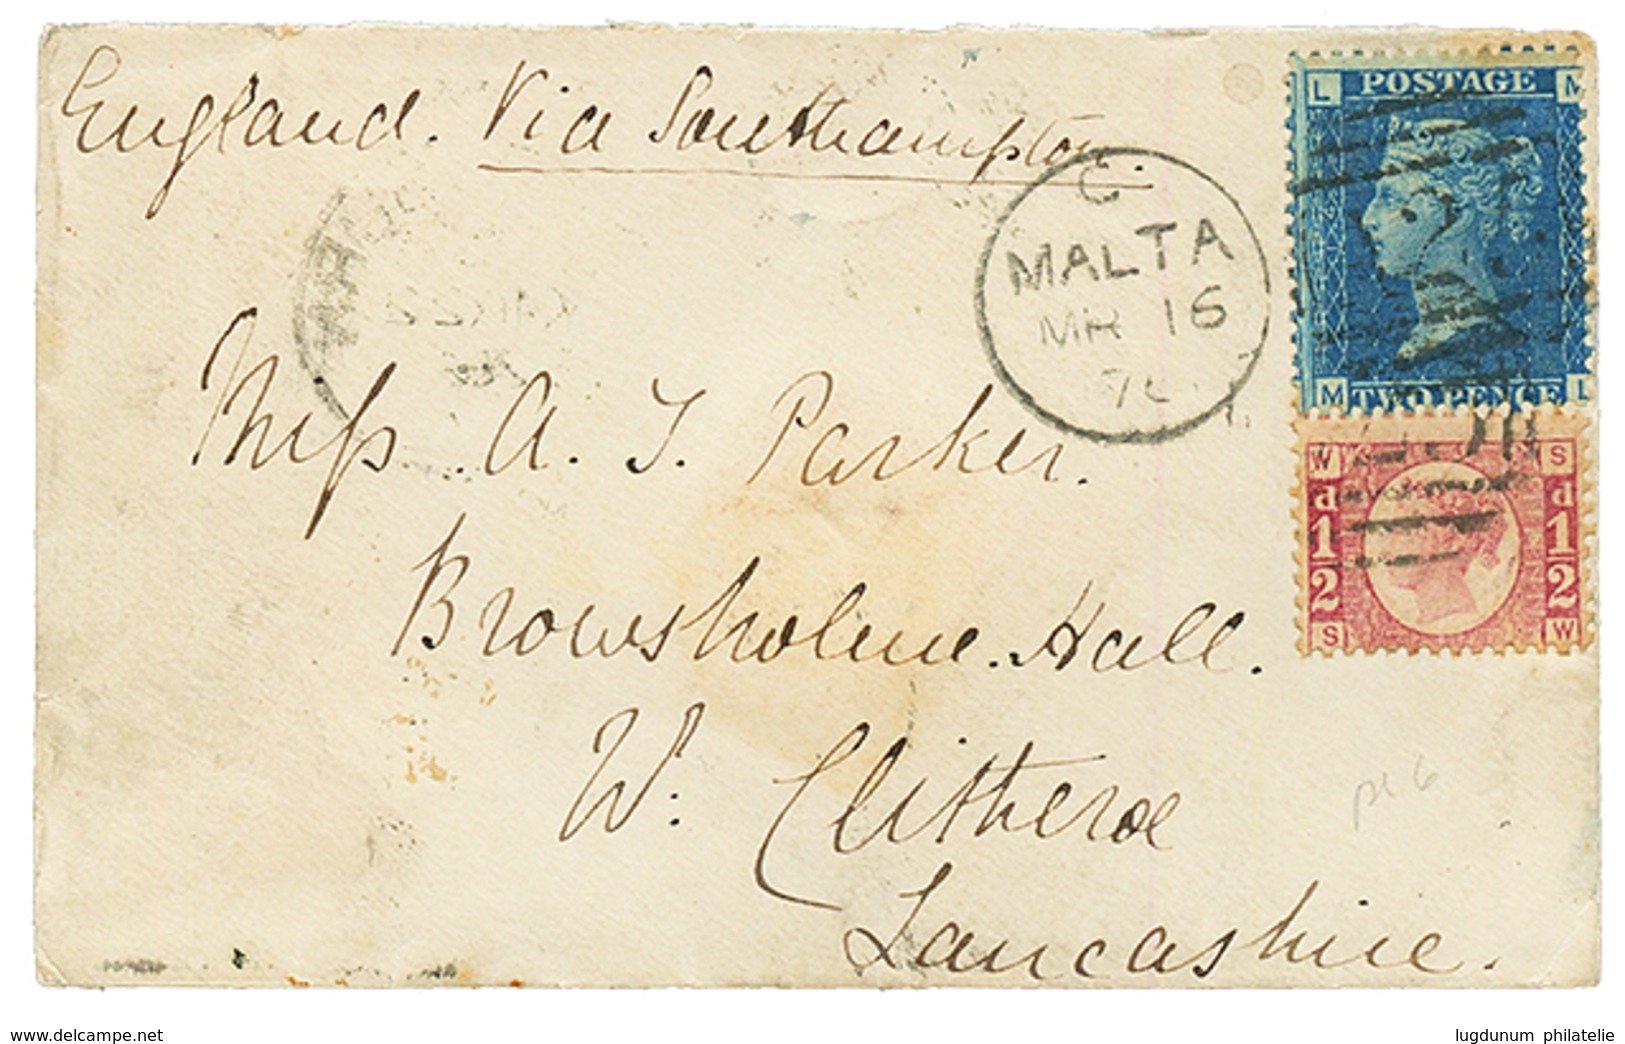 England. Via Southampton.
C
MALTA
MR 16
L POSTAGE M
M TWO PENCE L
W S
d d
1 1
2 2
S W
Miss A. J. Parker.
Browsholme Hall.
W. Clitheroe
Lancashire.
pl 6
www.delcampe.net
lugdunum philatelie